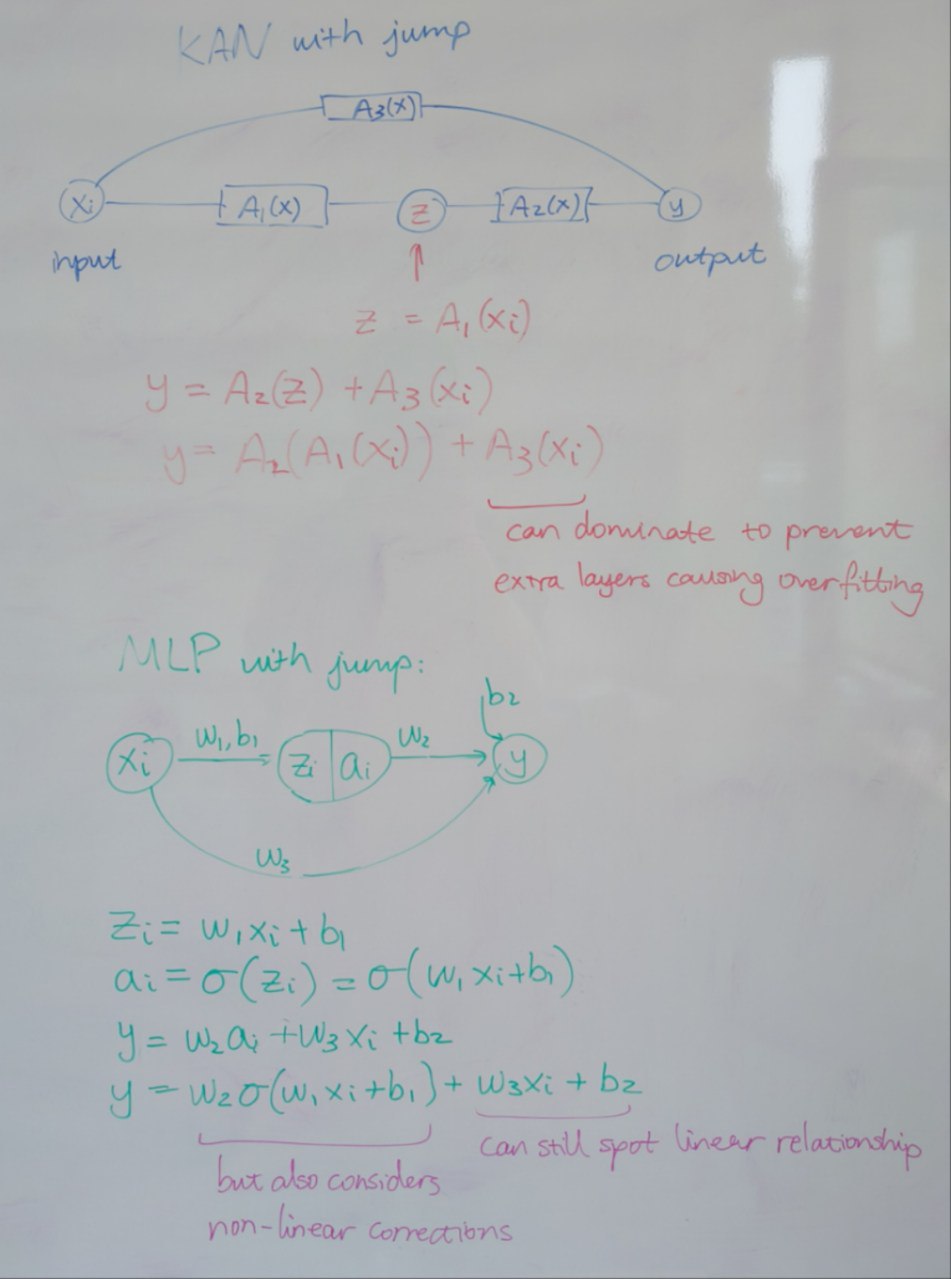 KAN with jump
A₃(x)
xᵢ A₁(x) z A₂(x) y
input output
z = A₁(xᵢ)
y = A₂(z) + A₃(xᵢ)
y = A₂(A₁(xᵢ)) + A₃(xᵢ)
can dominate to prevent
extra layers causing overfitting
MLP with jump:
b₂
xᵢ w₁,b₁ zᵢ aᵢ w₂ y
w₃
zᵢ = w₁xᵢ + b₁
aᵢ = σ(zᵢ) = σ(w₁xᵢ+b₁)
y = w₂aᵢ + w₃xᵢ + b₂
y = w₂σ(w₁xᵢ+b₁) + w₃xᵢ + b₂
can still spot linear relationship
but also considers
non-linear corrections